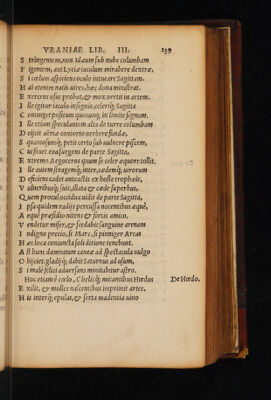 VRANIAE LIB. III. 139
S tringentem, non Idæum sub nube columbam
F igentem, aut Lyciæ iaculum mirabere dextræ,
S i cœlum aspiciens oculo intuare Sagittam.
H ac etenim natis vires, hæc dona ministrat.
E xercens assue probat, & mox vertit in artem.
I lle igitur iaculo insignis, celeriq; Sagitta
C ontinget positum quocunq; in limite signum.
I lle etiam speculantem alta de turre columbam
D eijciet adræ contorto verbere fundæ.
S quamosumq; petit certo sub vulnere piscem,
C uspices coasurgens de parte Sagitta,
E xtremo Aegoceros quum se celer æquore tollit.
I lle autem stragemq; inter, cædemq; virorum
D eficiens cadet anteactis ex hoste trophæis,
V ulneribusq; suis, allata & cæde superbus,
Q uem procul occidua uidit de parte Sagitta,
I psa quidem radijs percussa nocentibus æquè,
A eque præsidio nitens & fortis amico.
V endetur miser, & sordabit sanguine arenam
I ndigno precio, si Mars, si pinniger Arcas
H æc loca coniuncta soli ditione tenebunt.
A st hunc damnatum caueæ ad spectacula uulgo
O bijciet, gladijq; dabit Saturnus ad usum,
S i malè felici aduersans minitabitur astro.
Hoc etiam è cœlo, Chelisq; micantibus Hœdus
De Hœdo.
E xilit, & molles nascentibus imprimit artes.
H is interq; epulas, & serta madentia uino